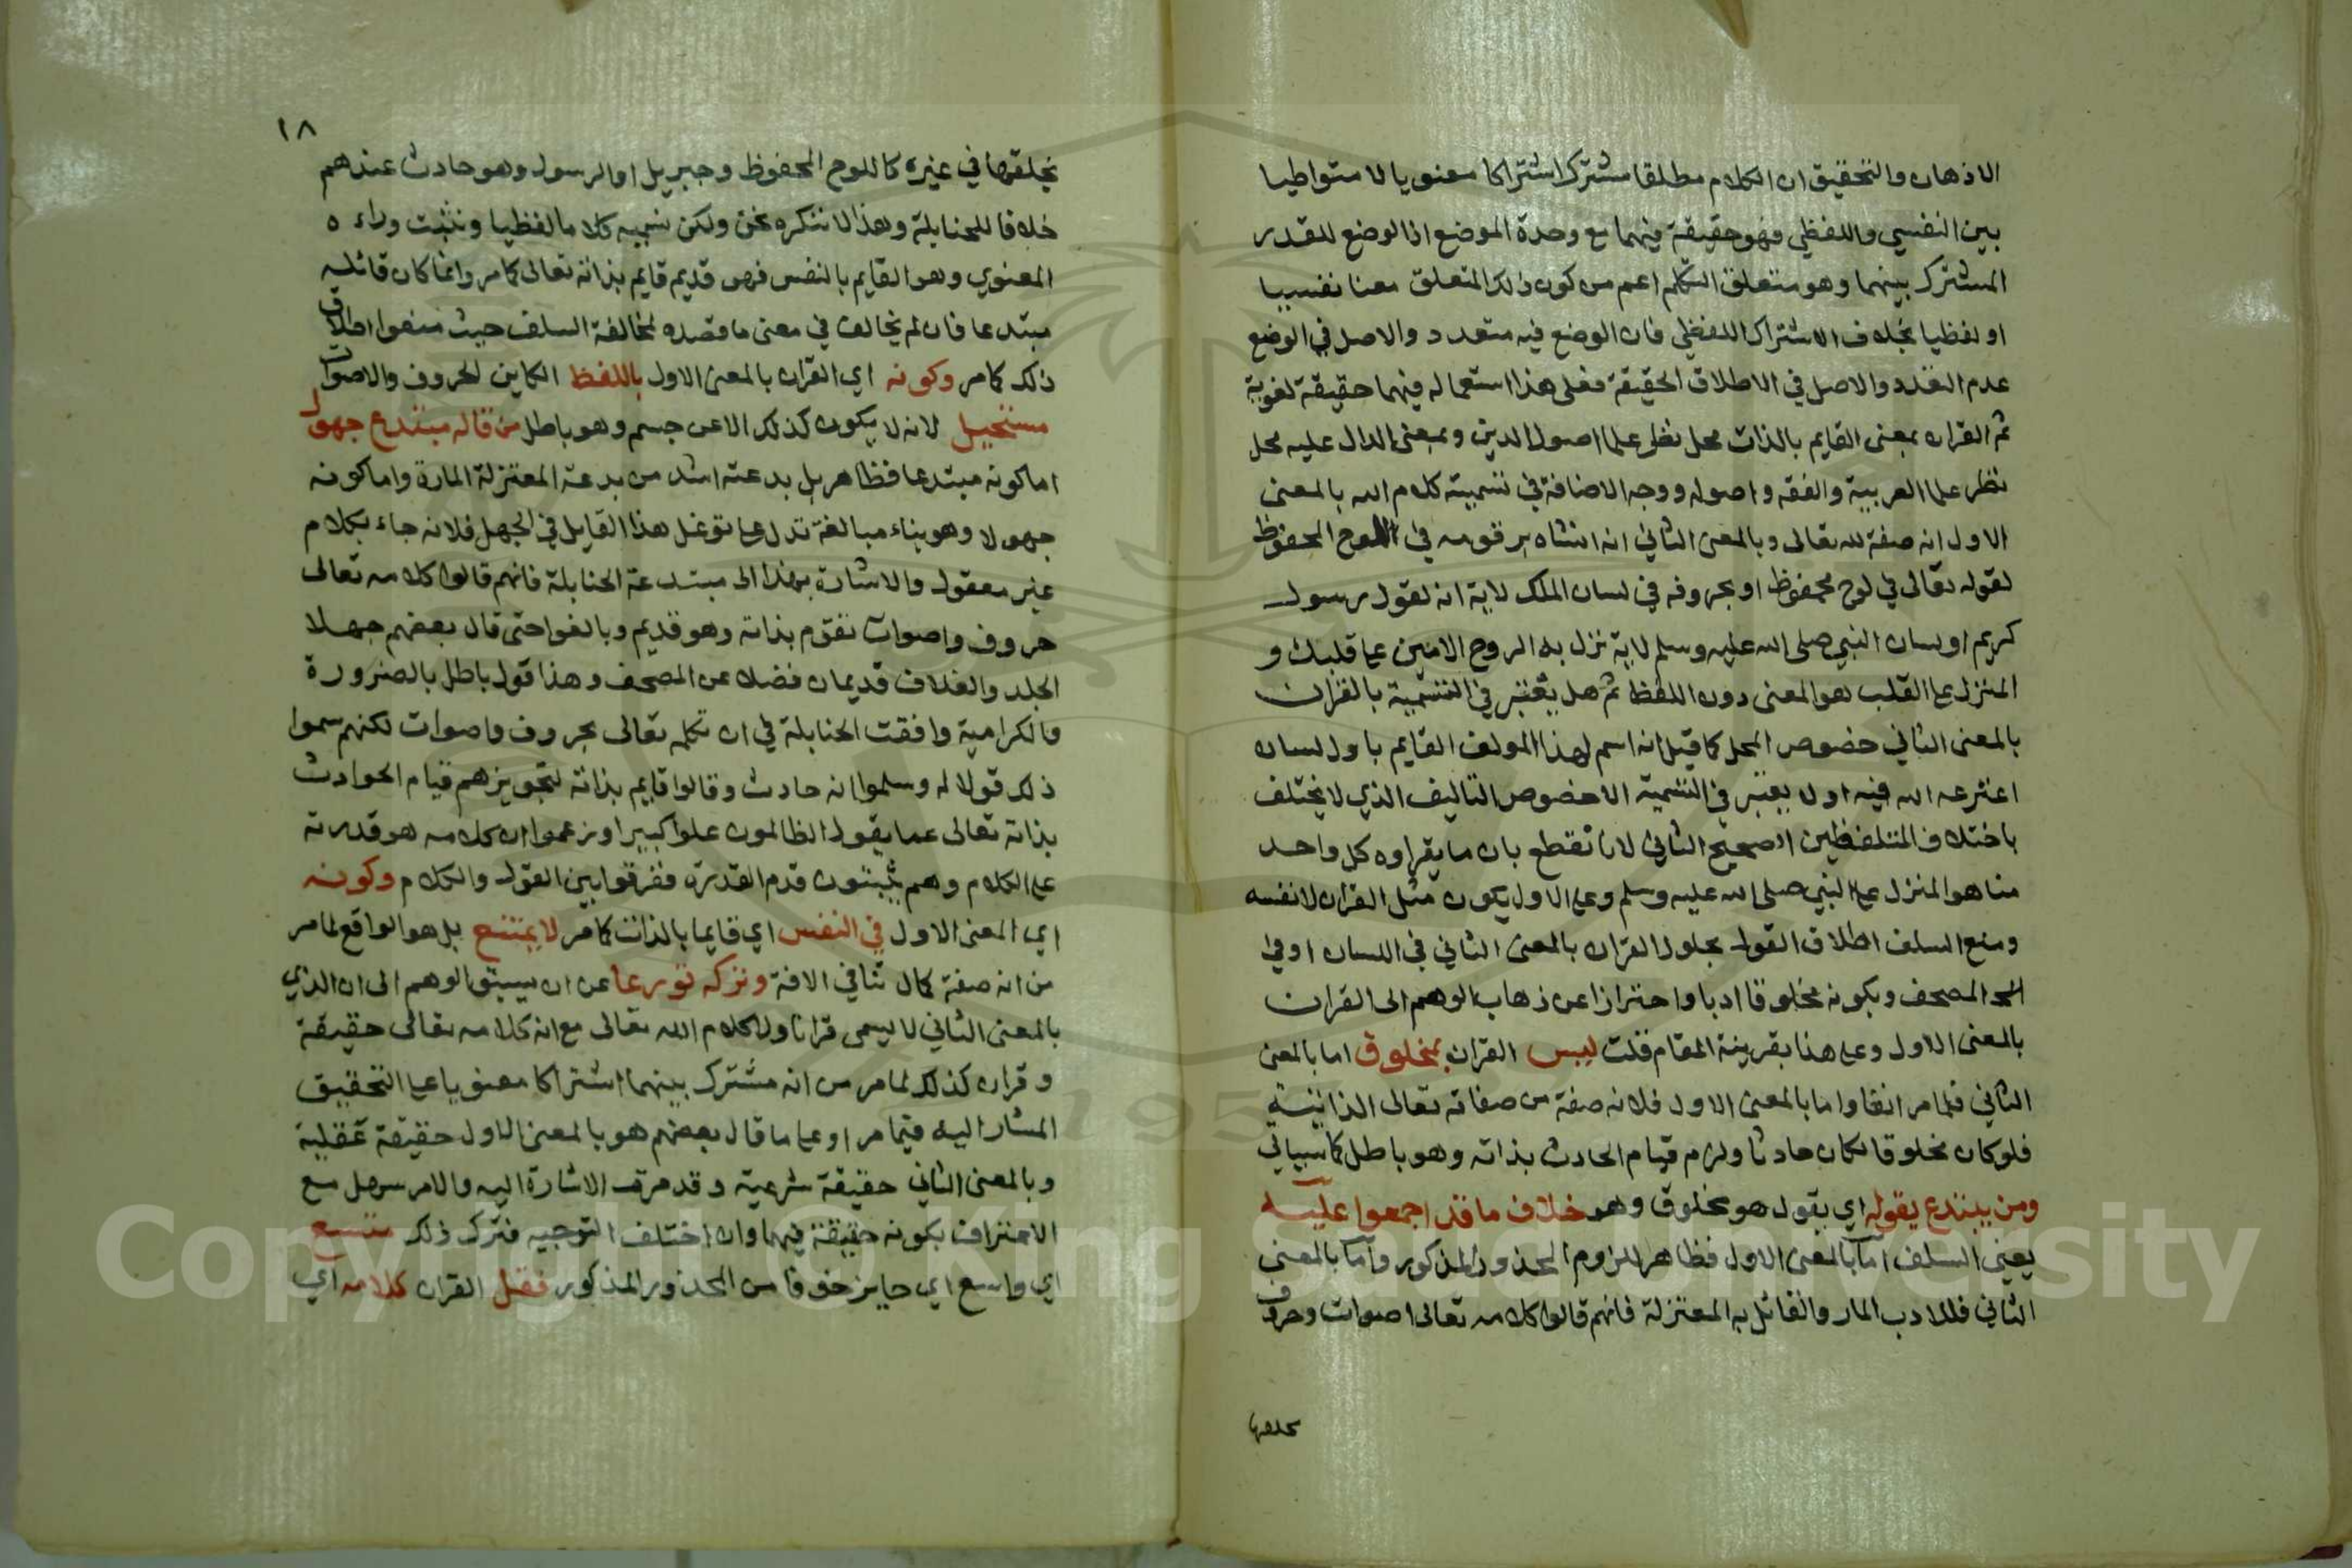 الاذهان والتحقيق ان الكلام مطلقا مشترك اشتراكا معنويا لا متواطيا
بين النفسي واللفظي فهو حقيقة فيهما مع وحدة الموضع اذ الوضع للقدر
المشترك بينهما وهو متعلق التكلم اعم من كون ذلك المتعلق معنا نفسيا
او لفظيا بخلاف الاشتراك اللفظي فان الوضع فيه متعدد والاصل في الوضع
عدم التعدد والاصل في الاطلاق الحقيقة فعلى هذا استعماله فيهما حقيقة لغوية
ثم القران بمعنى القايم بالذات محل نظر علما اصول الدين وبمعنى الدال عليه محل
نظر علما العربية والفقه واصوله ووجه الاضافة في تسمية كلام الله بالمعنى
الاول انه صفة لله تعالى وبالمعنى الثاني انه انشاه برقومه في اللوح المحفوظ
لقوله تعالى في لوح محفوظ او بحروفه في لسان الملك لاية انه لقول رسول
كريم او لسان النبي صلى الله عليه وسلم لاية نزل به الروح الامين على قلبك و
المنزل على القلب هو المعنى دون اللفظ ثم هل يعتبر في التسمية بالقران
بالمعنى الثاني خصوص المحل كما قيل انه اسم لهذا المولف القايم باول لسان
اخترعه الله فيه او لا يعتبر في التسمية الا خصوص التاليف الذي لا يختلف
باختلاف المتلفظين الصحيح الثاني لانا نقطع بان ما يقراوه كل واحد
منا هو المنزل على النبي صلى الله عليه وسلم وعلى الاول يكون مثل القران لا نفسه
ومنع السلف اطلاق القول بحلول القران بالمعنى الثاني في اللسان او في
المصحف وبكونه مخلوقا ادبا واحترازا عن ذهاب الوهم الى القران
بالمعنى الاول وعلى هذا بقرينة المقام قلت ليس القران بمخلوق اما بالمعنى
الثاني فلما مر انفا واما بالمعنى الاول فلانه صفة من صفاته تعالى الذاتية
فلو كان مخلوقا لكان حادثا ولزم قيام الحادث بذاته وهو باطل كما سياتي
ومن يبتدع بقوله اي بقول هو مخلوق وهو خلاف ما قد اجمعوا عليه
يعني السلف اما بالمعنى الاول فظاهر للزوم المحذور المذكور واما بالمعنى
الثاني فللادب المار والقائل به المعتزلة فانهم قالوا كلامه تعالى اصوات وحروف
يخلقها
١٨
يخلقها في غيره كاللوح المحفوظ وجبريل او الرسول وهو حادث عندهم
خلافا للحنابلة وهذا لا ننكره نحن ولكن نسميه كلاما لفظيا ونثبت وراءه
المعنوي وهو القايم بالنفس فهو قديم قايم بذاته تعالى كما مر وانما كان قائله
مبتدعا فان لم يخالف في معنى ما قصده لمخالفة السلف حيث منعوا اطلاق
ذلك كما مر وكونه اي القران بالمعنى الاول باللفظ الكاين لحروف والاصوات
مستحيل لانه لا يكون كذلك الا عن جسم وهو باطل من قاله مبتدع جهول
اما كونه مبتدعا فظاهر بل بدعته اشد من بدعة المعتزلة المارة واما كونه
جهولا وهو بناء مبالغة تدل على توغل هذا القايل في الجهل فلانه جاء بكلام
غير معقول والاشارة بهذا الى مبتدعة الحنابلة فانهم قالوا كلامه تعالى
حروف واصوات تقوم بذاته وهو قديم وبالغوا حتى قال بعضهم جهلا
الجلد والغلاف قديمان فضلا عن المصحف وهذا قول باطل بالضرورة
والكرامية وافقت الحنابلة في ان تكلمه تعالى بحروف واصوات لكنهم سموا
ذلك قولا له وسلموا انه حادث وقالوا قايم بذاته لتجويزهم قيام الحوادث
بذاته تعالى عما يقول الظالمون علوا كبيرا وزعموا ان كلامه هو قدرته
على الكلام وهم يثبتون قدم القدرة ففرقوا بين القول والكلام وكونه
اي المعنى الاول في النفس اي قايما بالذات كما مر لا يمتنع بل هو الواقع لما مر
من انه صفة كمال تنافي الافة وتركه تورعا عن ان يسبق الوهم الى ان الذي
بالمعنى الثاني لا يسمى قرانا ولا كلام الله تعالى مع انه كلامه تعالى حقيقة
وقران كذلك لما مر من انه مشترك بينهما اشتراكا معنويا على التحقيق
المشار اليه فيما مر او على ما قال بعضهم هو بالمعنى الاول حقيقة عقلية
وبالمعنى الثاني حقيقة شرعية وقد مرت الاشارة اليه والامر سهل مع
الاعتراف بكونه حقيقة فيهما وان اختلف التوجيه فترك ذلك متسع
اي واسع اي جايز خوفا من المحذور المذكور فقل القران كلامه اي
Copyright © King Saud University